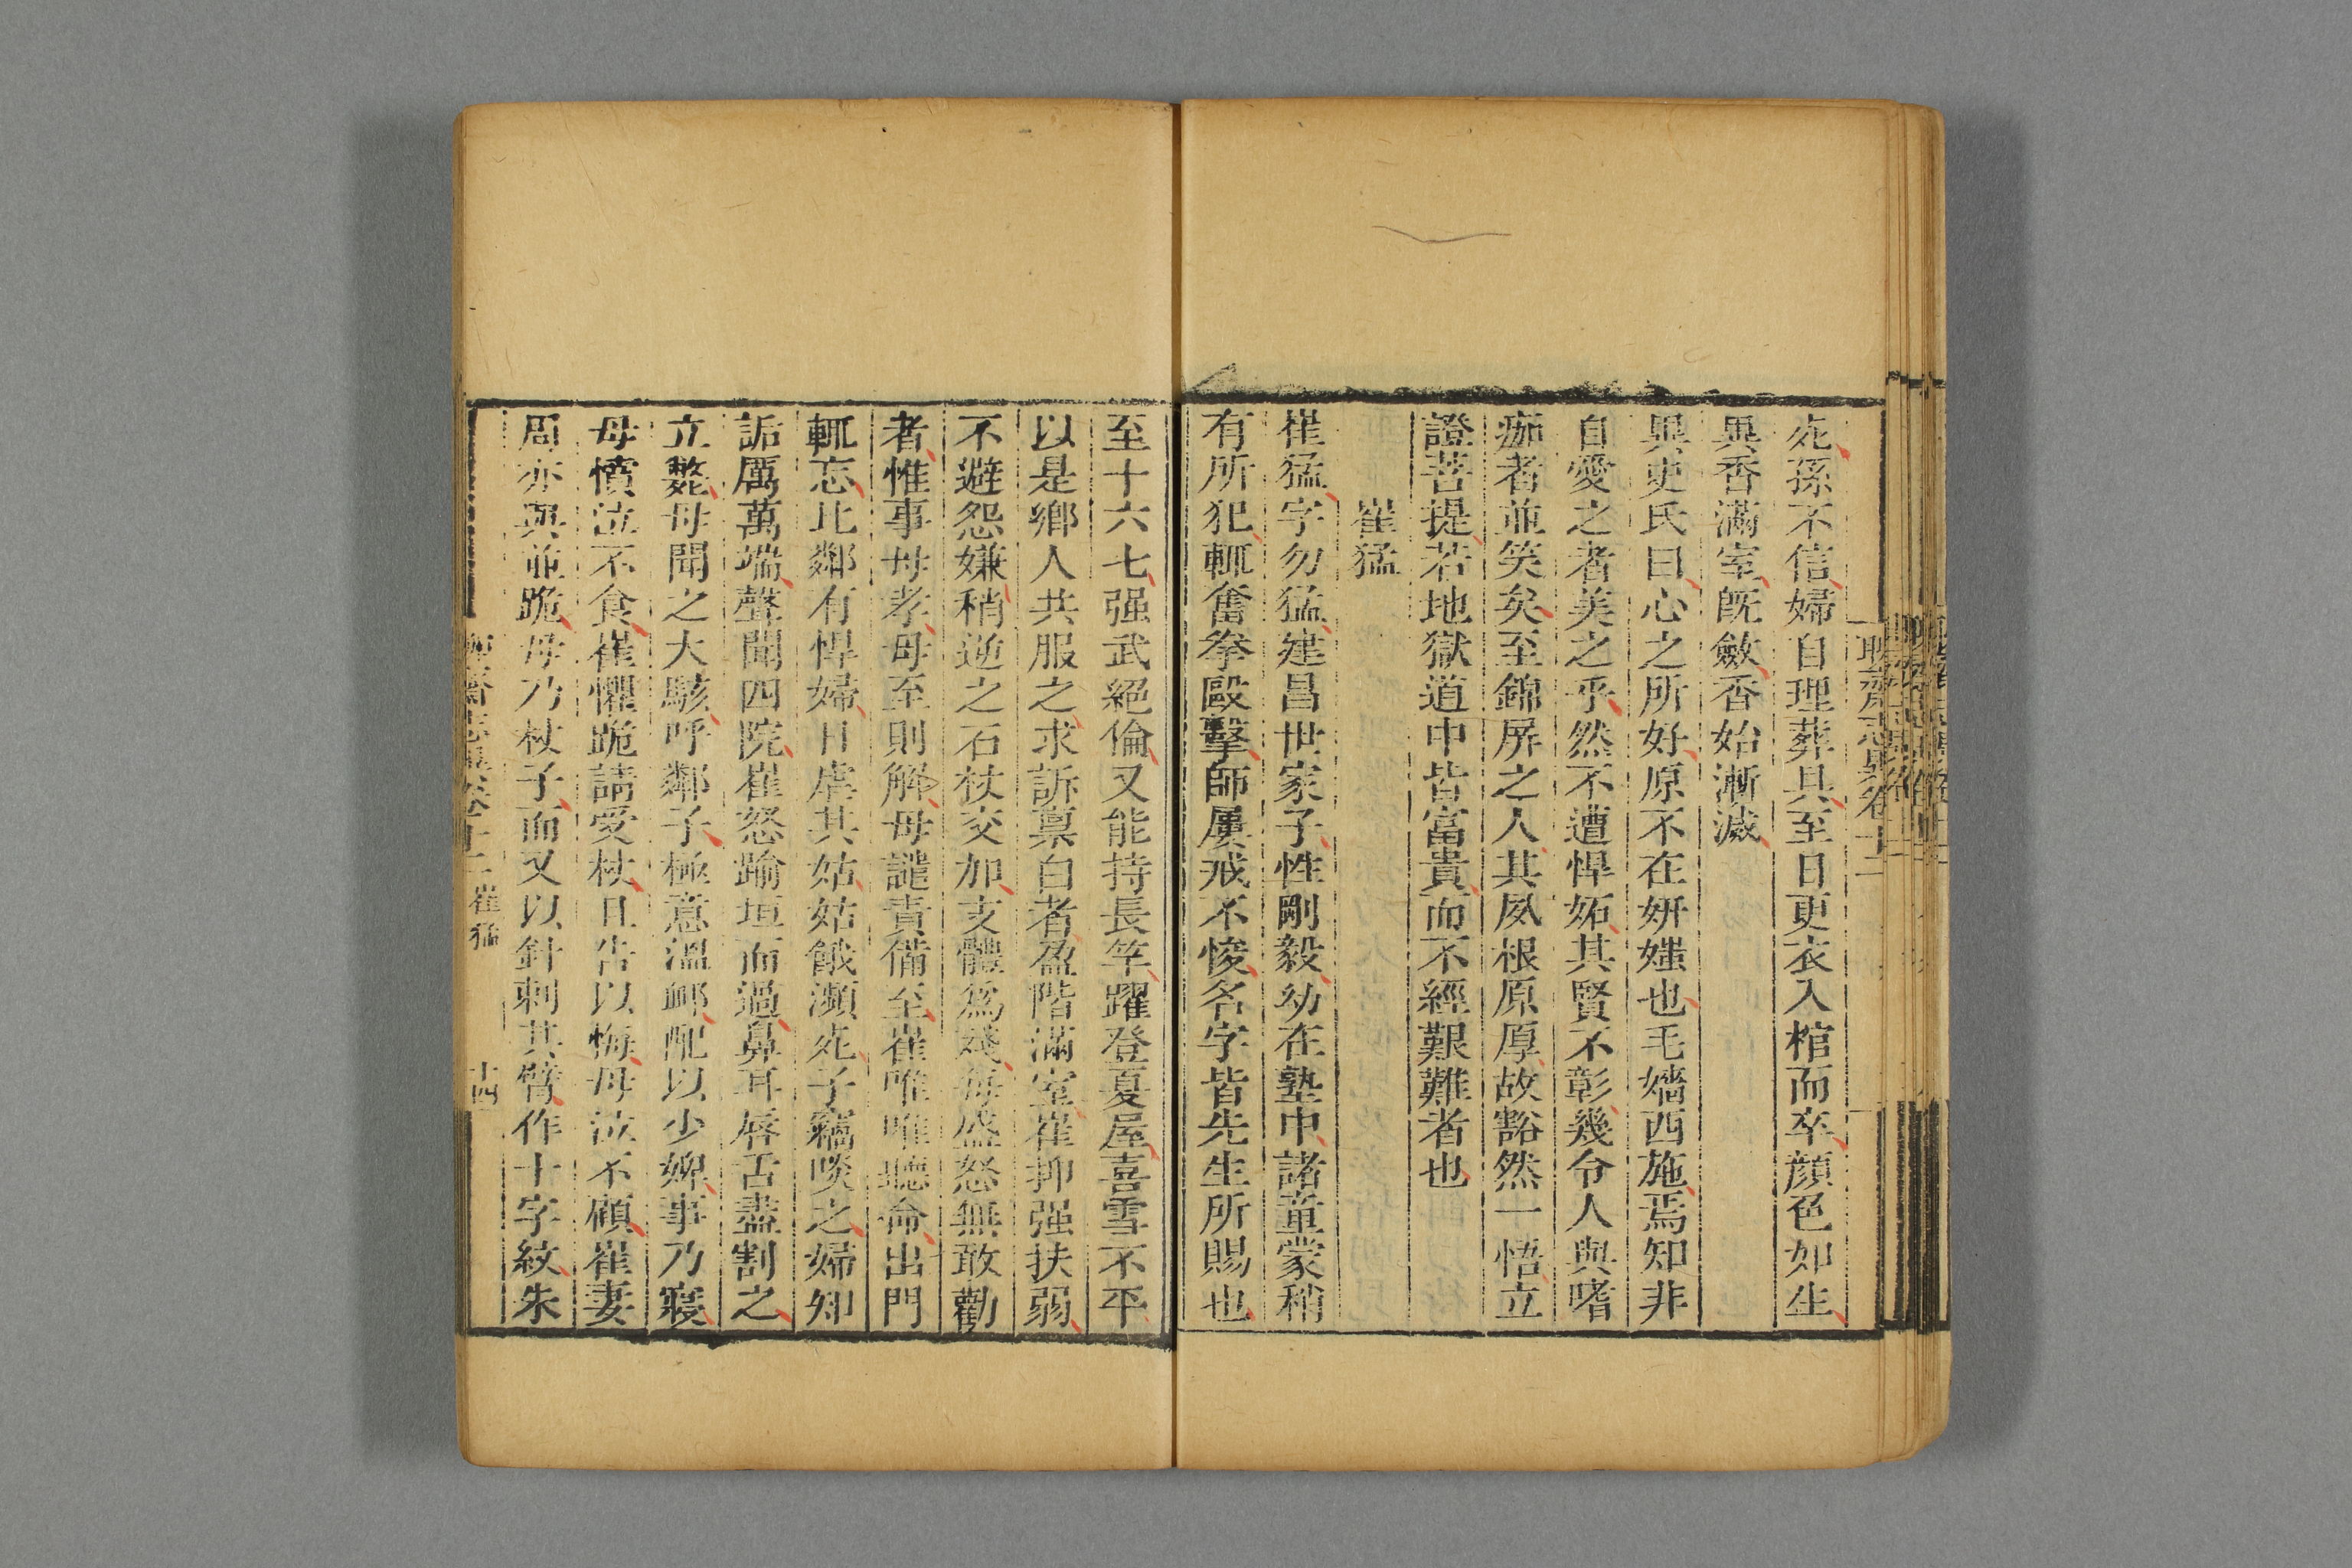 聊齋志異卷十二
死孫不信婦自理葬具至日更衣入棺而卒顔色如生
異香滿室旣斂香始漸滅
異史氏曰心之所好原不在妍媸也毛嬙西施焉知非
自愛之者美之乎然不遭悍妬其賢不彰幾令人與嗜
痂者並笑矣至錦屏之人其夙根原厚故豁然一悟立
證菩提若地獄道中皆富貴而不經艱難者也
崔猛
崔猛字勿猛建昌世家子性剛毅幼在塾中諸童蒙稍
有所犯輒奮拳毆擊師屢戒不悛名字皆先生所賜也
至十六七强武絕倫又能持長竿躍登夏屋喜雪不平
以是鄉人共服之求訴稟白者盈階滿室崔抑强扶弱
不避怨嫌稍逆之石杖交加支體爲殘每盛怒無敢勸
者惟事母孝母至則解母譴責備至崔唯唯聽命出門
輒忘比鄰有悍婦日虐其姑姑餓瀕死子竊啖之婦知
詬厲萬端聲聞四院崔怒踰垣而過鼻耳唇舌盡割之
立斃母聞之大駭呼鄰子極意溫卹配以少婢事乃寢
母憤泣不食崔懼跪請受杖且告以悔母泣不顧崔妻
周亦與並跪母乃杖子而又以針刺其臂作十字紋朱
聊齋志異卷十二 崔猛 十四